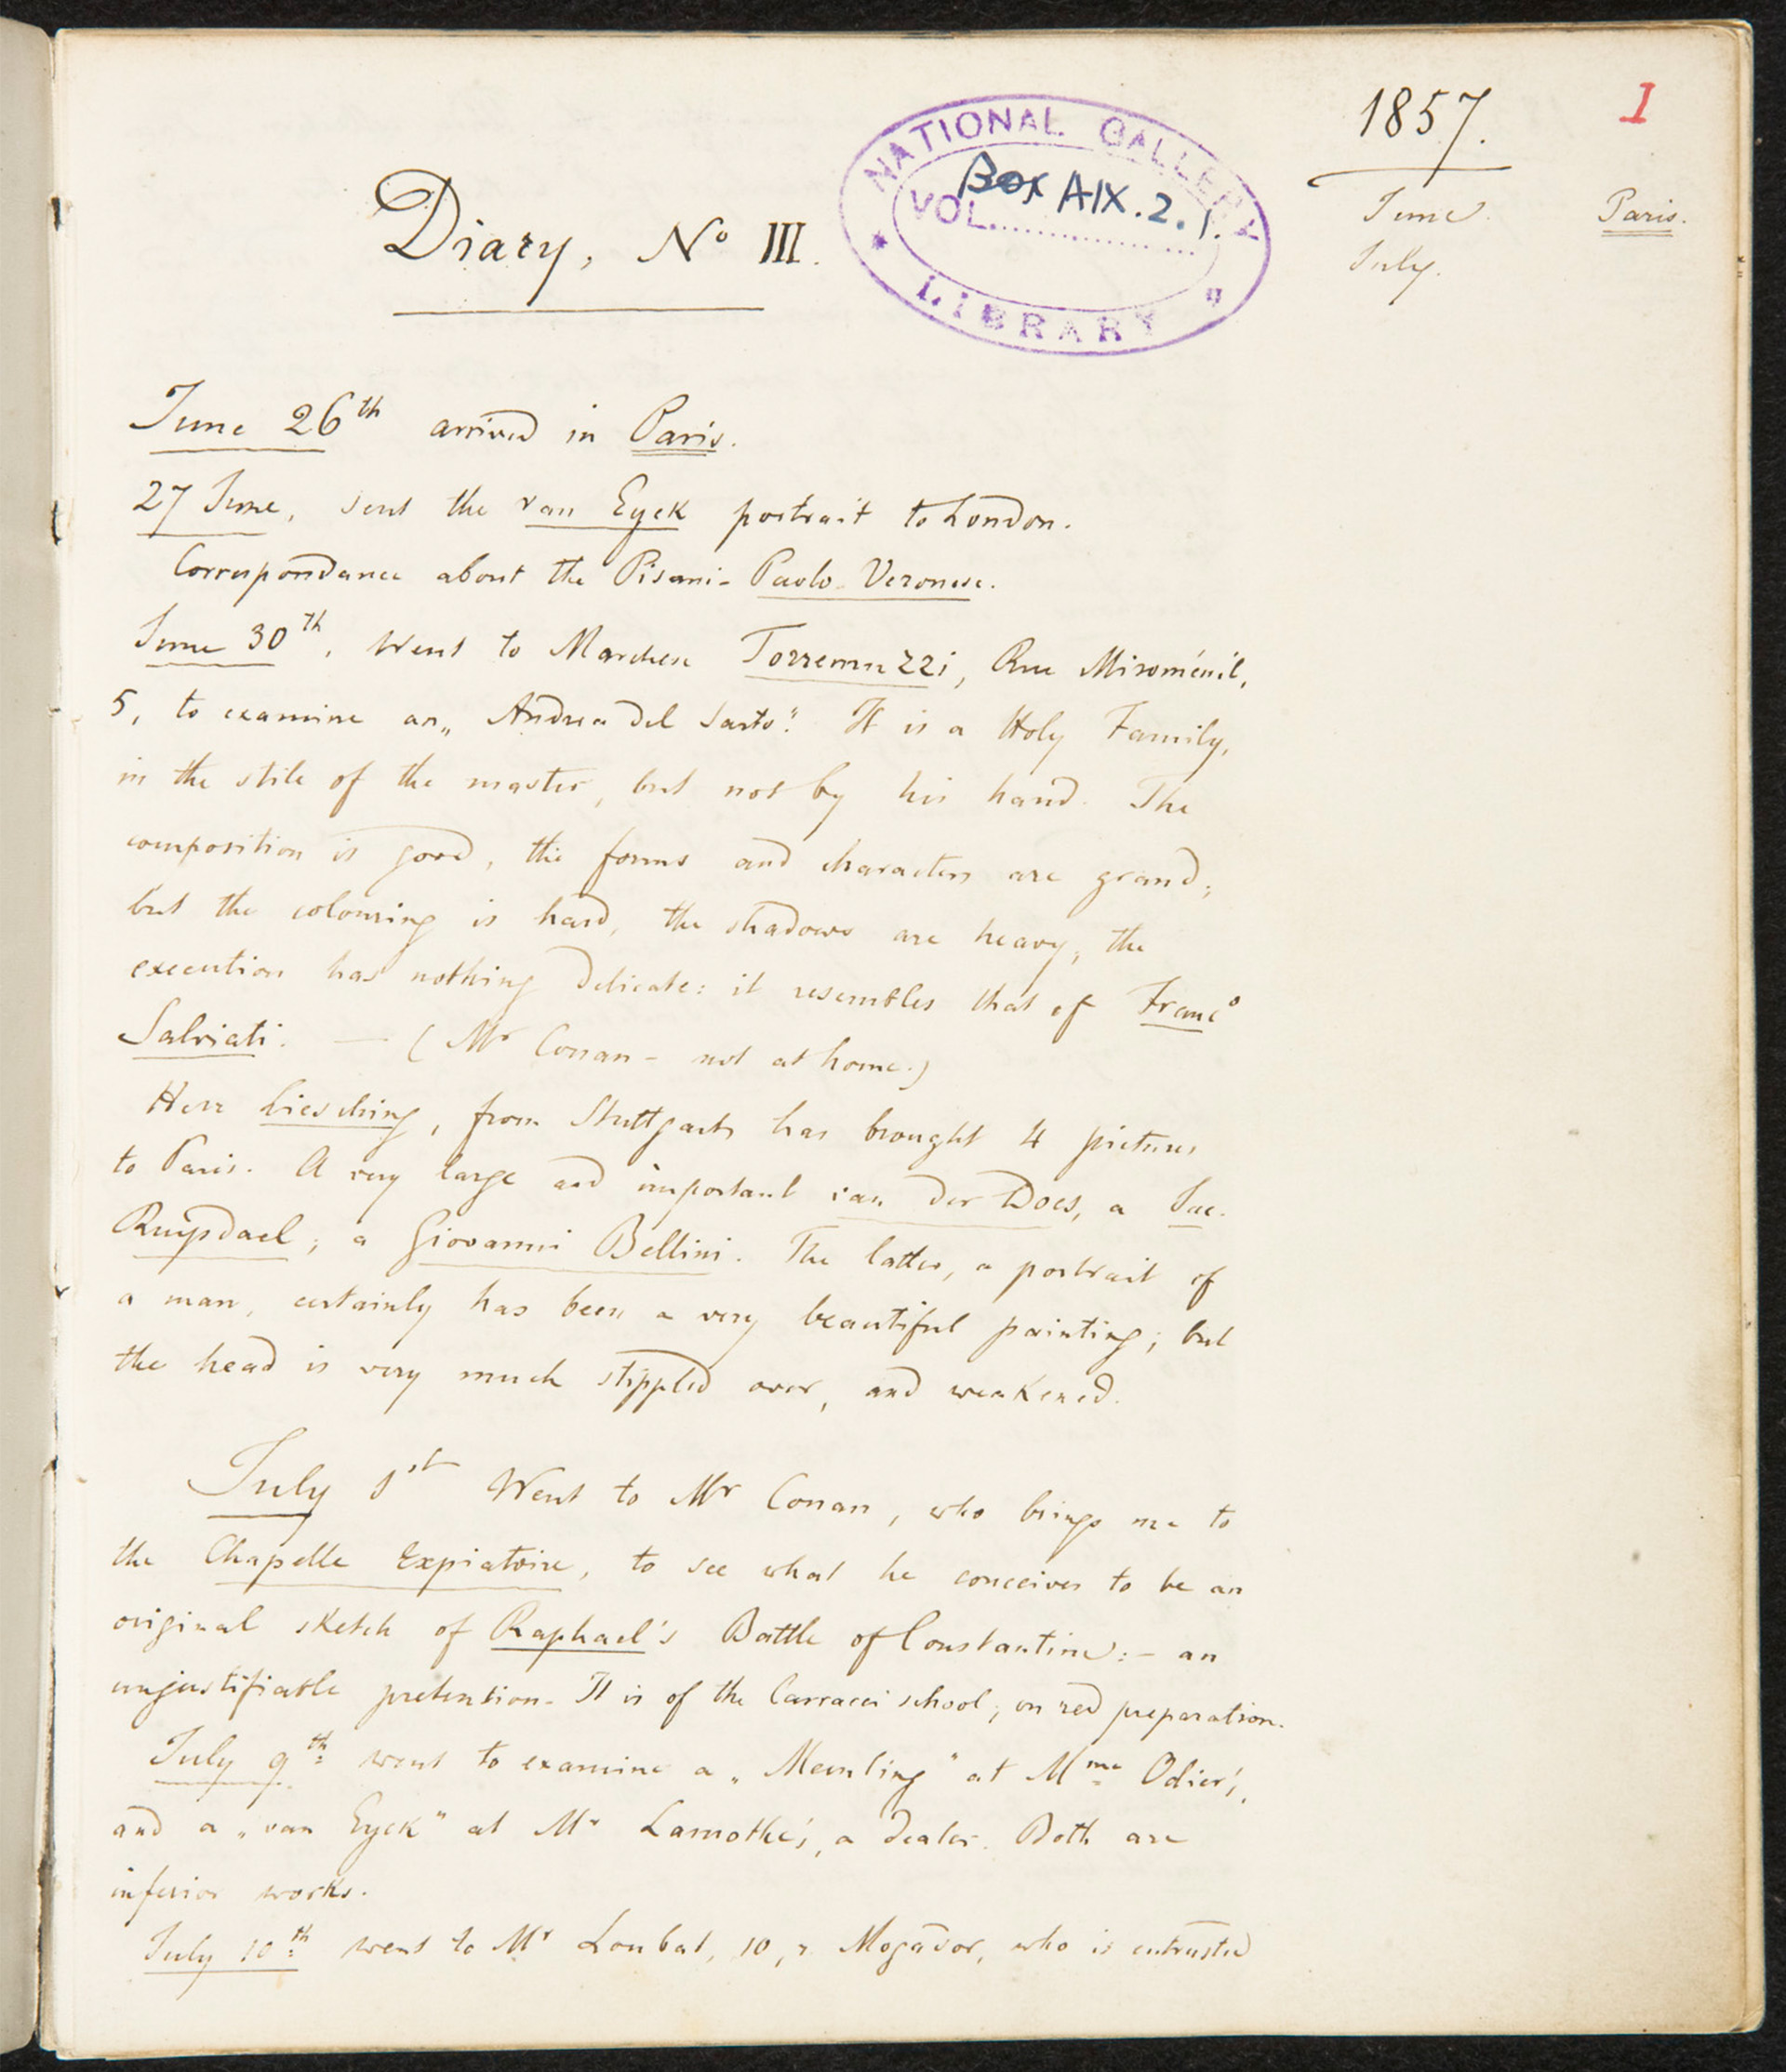 1857.
1
Diary, No III.
NATIONAL GALLERY
Box AIX.2.1.
VOL.
LIBRARY
June.
Paris.
July.
June 26th arrived in Paris.
27 June, sent the van Eyck portrait to London.
Correspondance about the Pisani-Paolo Veronese.
June 30th, Went to Marchese Torremuzzi, Rue Miroménil,
5, to examine an „Andrea del Sarto“. It is a Holy Family,
in the stile of the master, but not by his hand. The
composition is good, the forms and characters are grand;
but the colouring is hard, the shadows are heavy, the
execution has nothing delicate: it resembles that of Franco
Salviati. — (Mr Conan - not at home.)
Herr Liesching, from Stuttgart has brought 4 pictures
to Paris. A very large and important van der Does, a Jac.
Ruysdael, a Giovanni Bellini. The latter, a portrait of
a man, certainly has been a very beautiful painting; but
the head is very much stippled over, and weakened.
July 1st Went to Mr Conan, who brings me to
the Chapelle Expiatoire, to see what he conceives to be an
original sketch of Raphael's Battle of Constantine:- an
unjustifiable pretention. It is of the Carracci school, on red preparation.
July 9th went to examine a „Memling“ at Mme Odier's,
and a „van Eyck“ at Mr Lamothe's, a dealer. Both are
inferior works.
July 10th went to Mr Loubat, 10, r. Mogador, who is entrusted